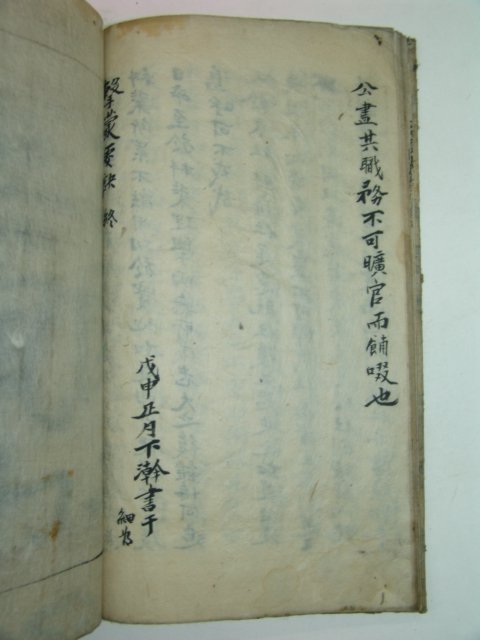 公盡其職務不可曠官而餔啜也
擊蒙要訣 終
戊申正月下澣書于
細谷